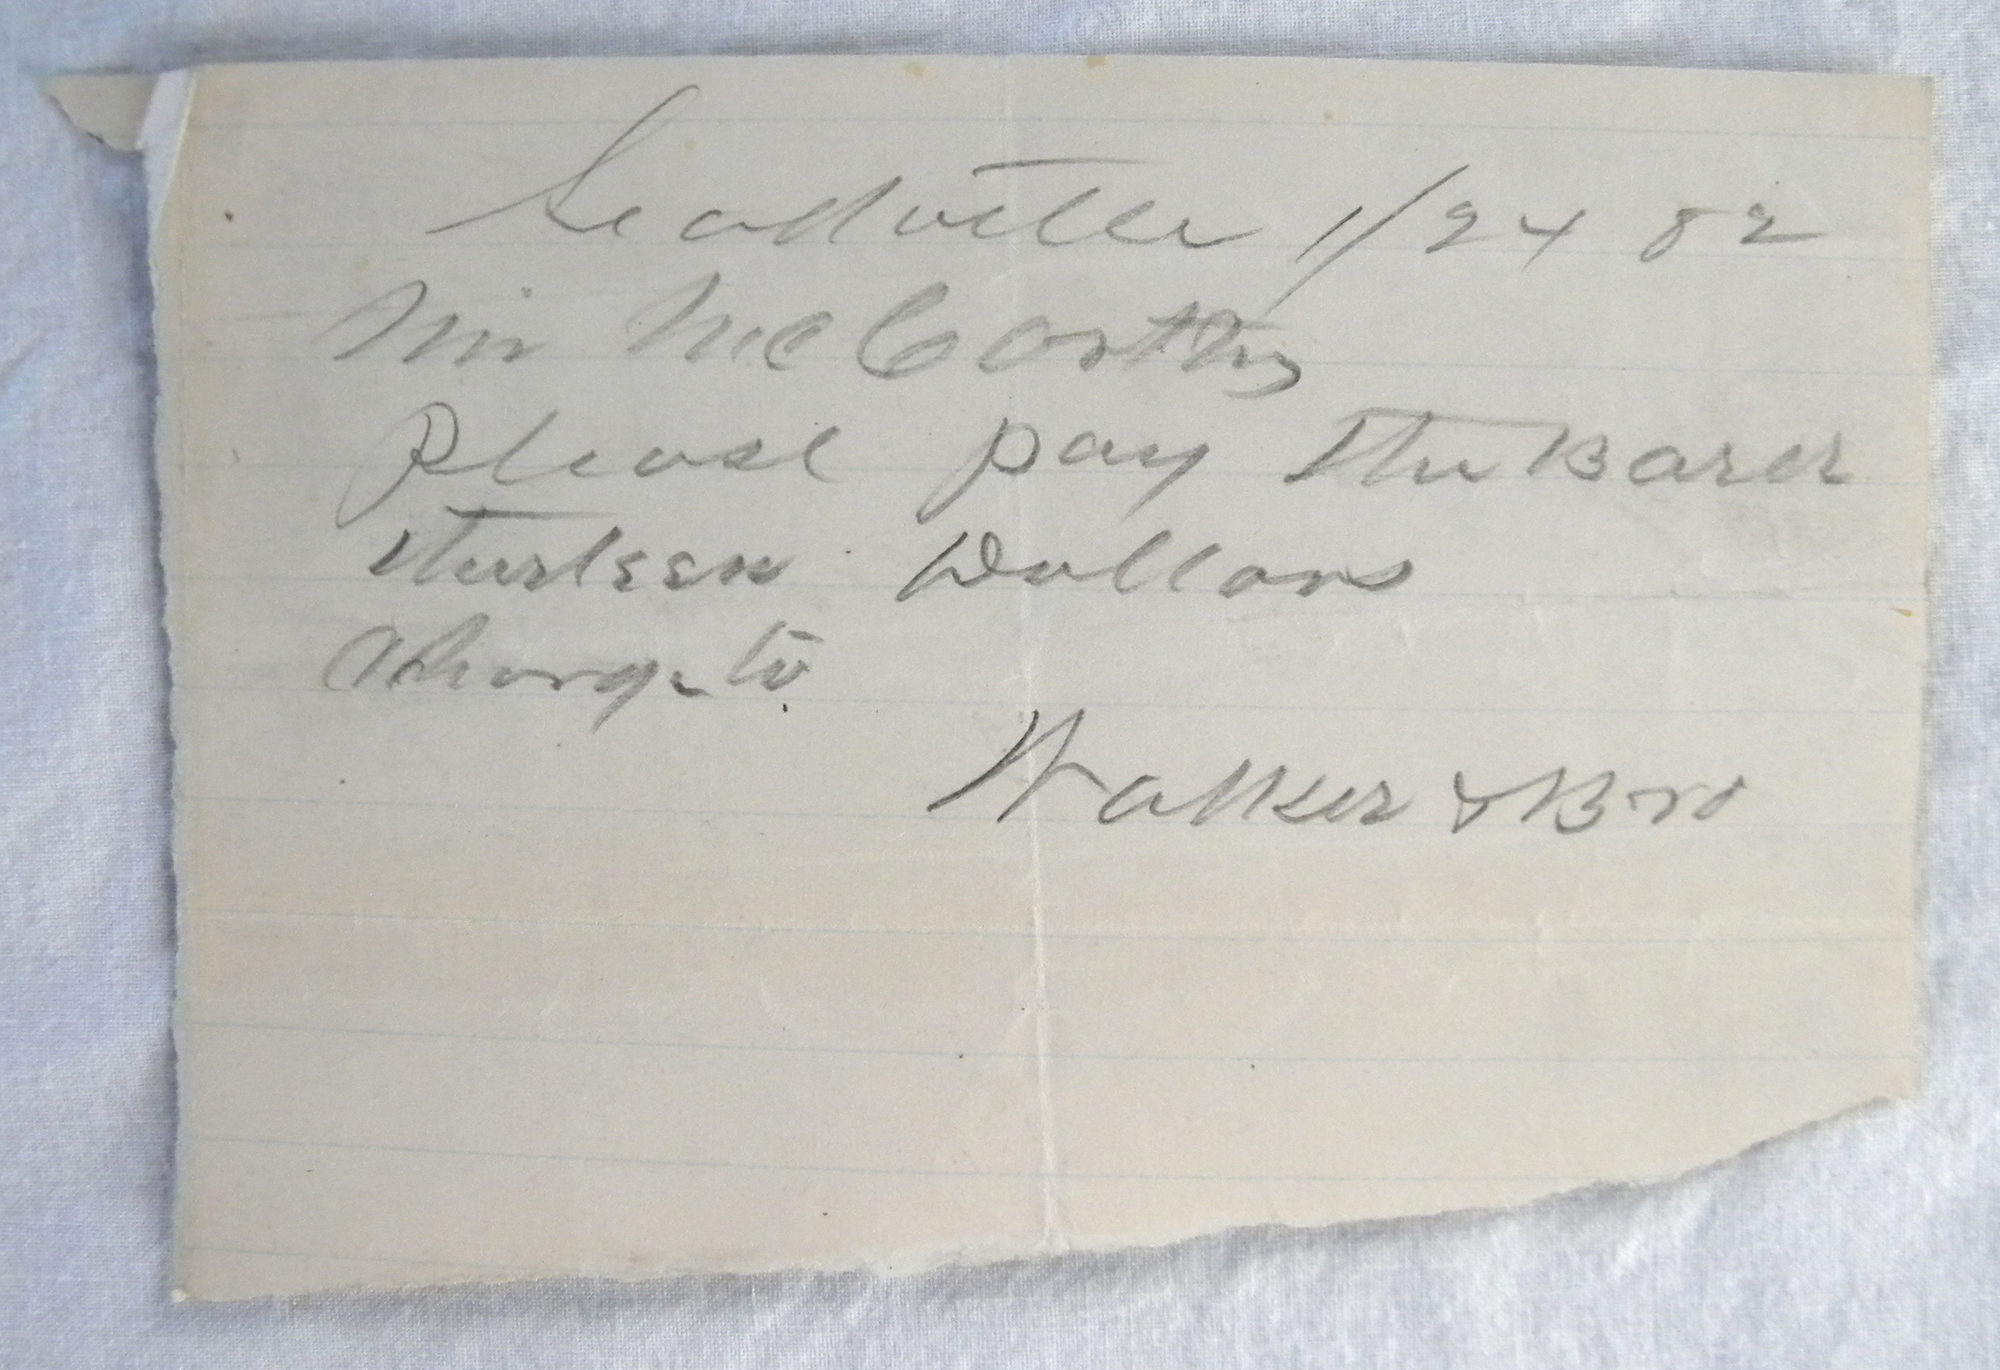 Leadville 1/24 82
Mr McCorthy
Please pay the Barer
thirteen Dollars
Charge to
Walker & Bro